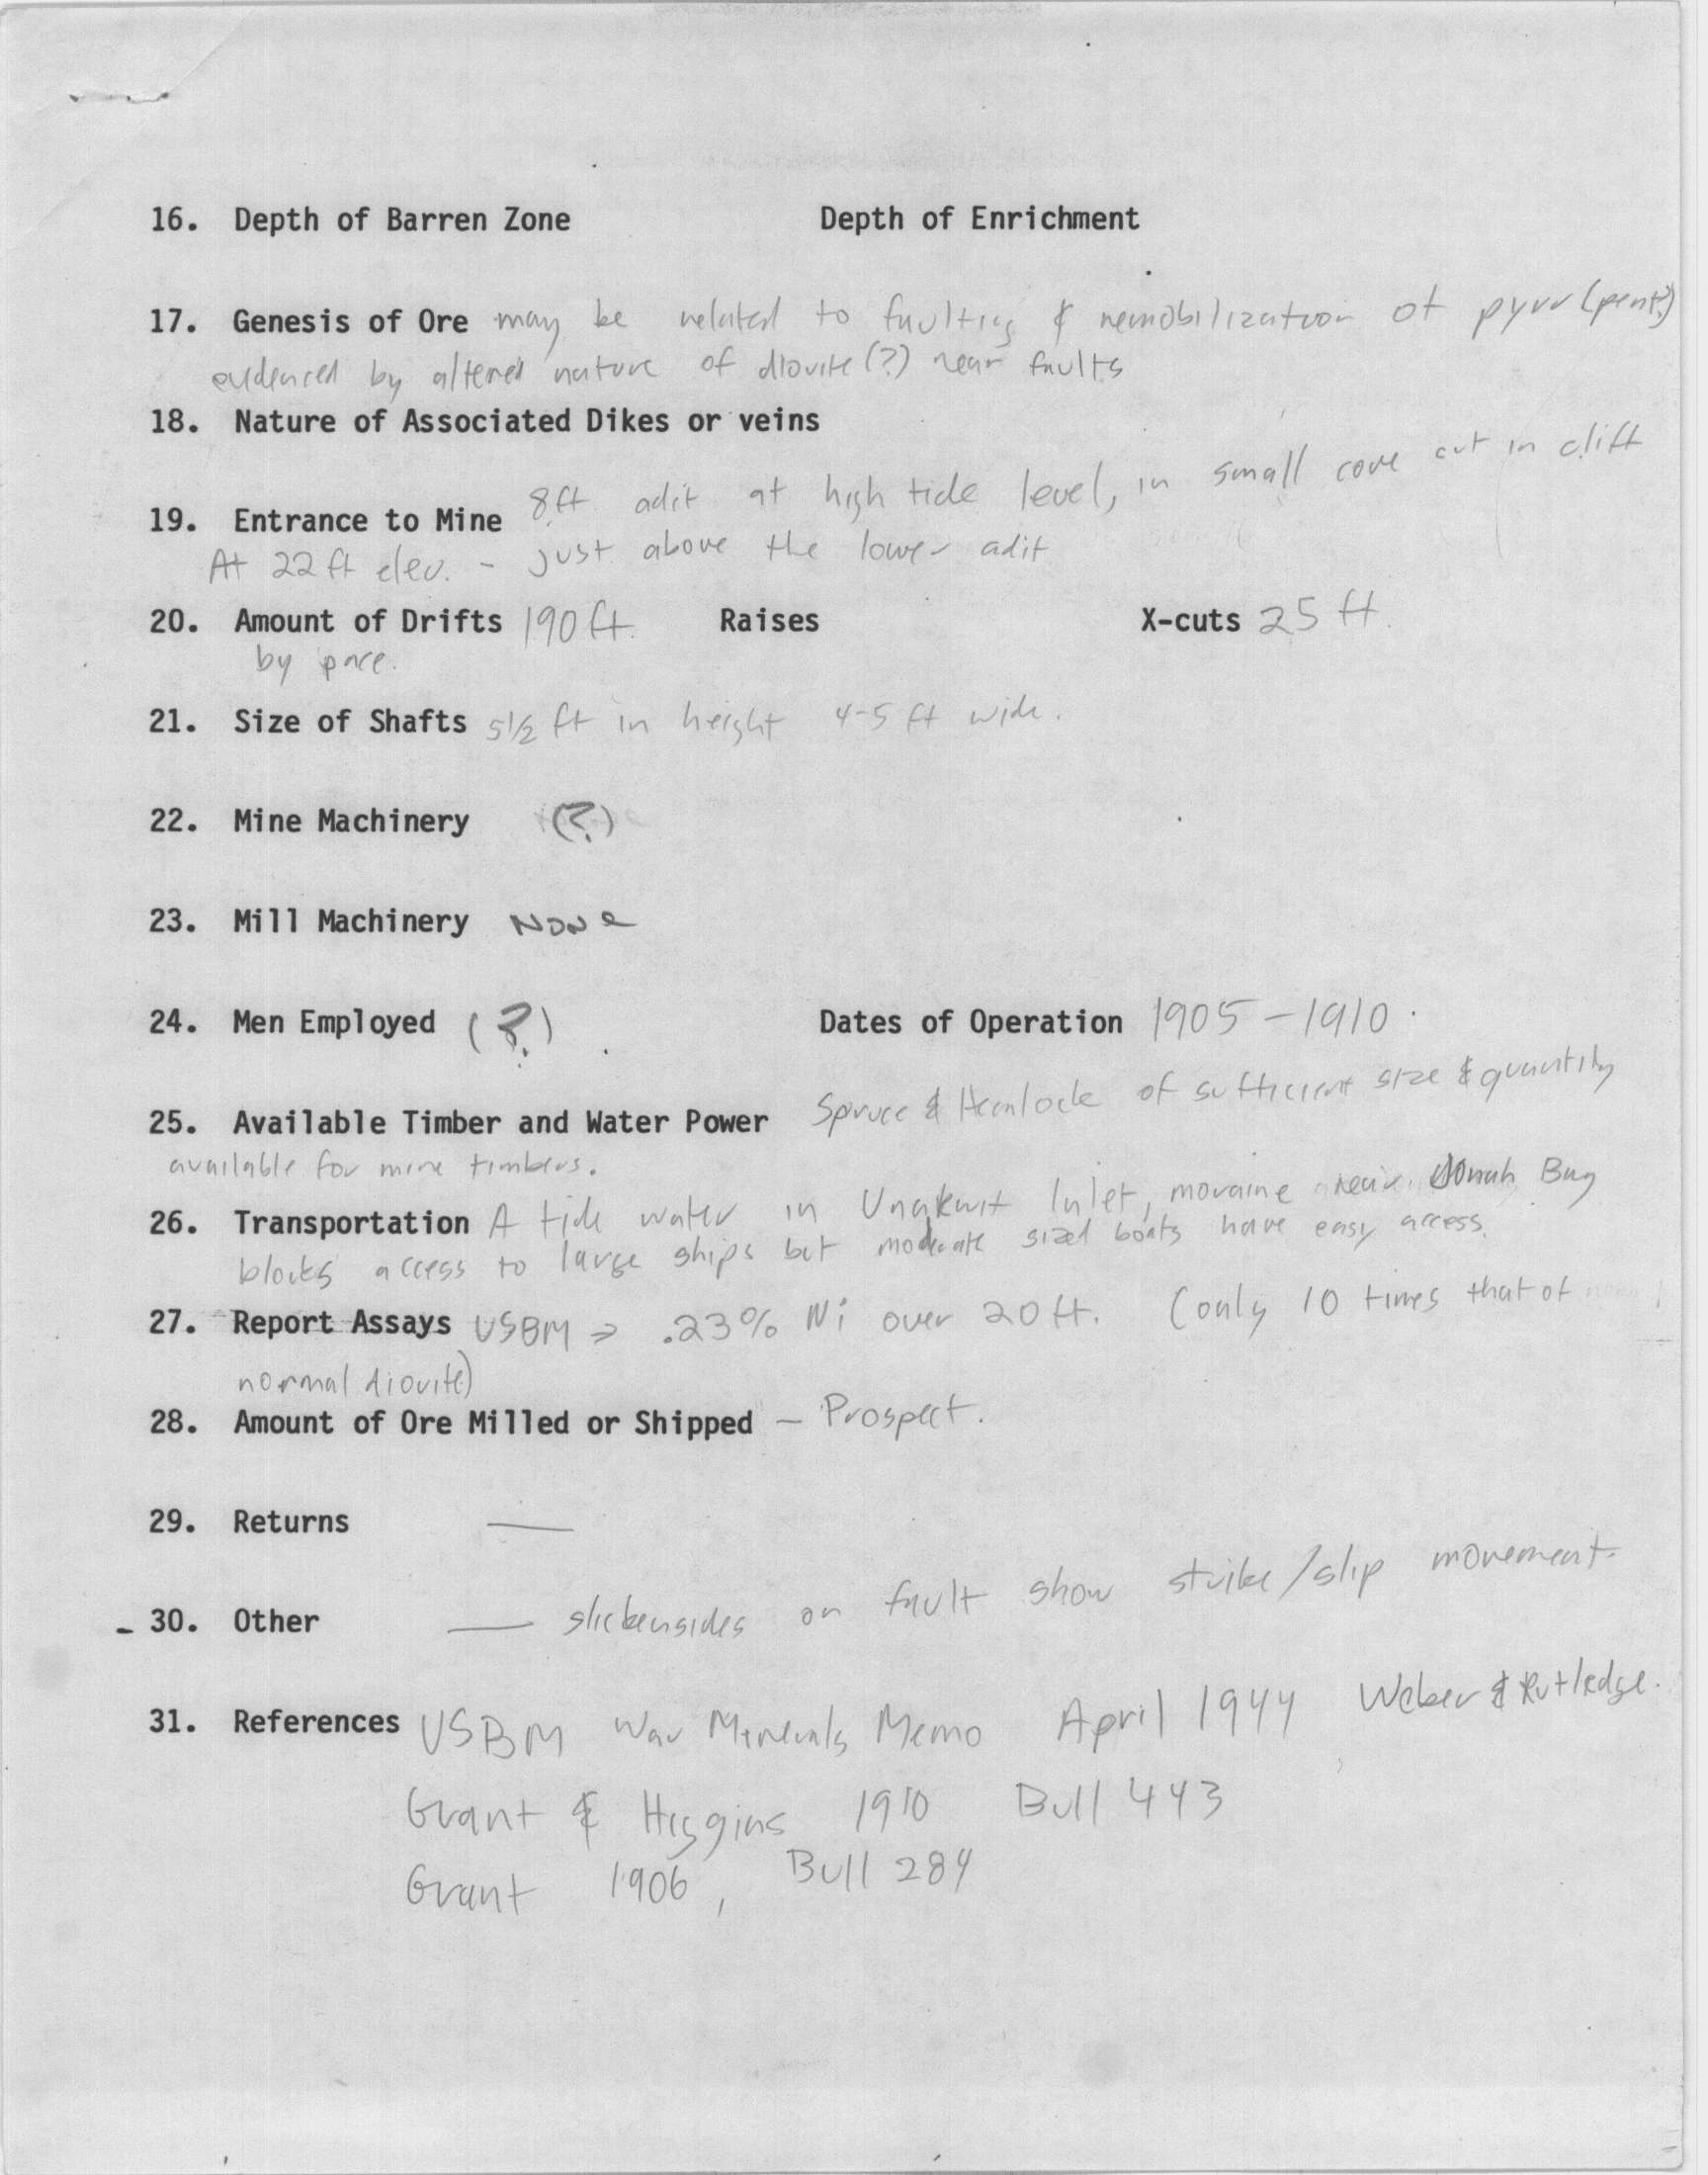 16. Depth of Barren Zone Depth of Enrichment
17. Genesis of Ore may be related to faulting & remobilization of pyrr (pent?)
evidenced by altered nature of diorite (?) near faults
18. Nature of Associated Dikes or veins
19. Entrance to Mine 8 ft adit at high tide level, in small cove cut in cliff
At 22 ft elev. - just above the lower adit
20. Amount of Drifts 190 ft. Raises X-cuts 25 ft.
by pace.
21. Size of Shafts 5 1/2 ft in height 4-5 ft wide.
22. Mine Machinery (?)
23. Mill Machinery None
24. Men Employed (?) Dates of Operation 1905 - 1910.
25. Available Timber and Water Power Spruce & Hemlock of sufficient size & quantity
available for mine timbers.
26. Transportation A tide water in Unakwit Inlet, moraine near Jonah Bay
blocks access to large ships but moderate sized boats have easy access.
27. Report Assays USBM => .23% Ni over 20 ft. (only 10 times that of
normal diorite)
28. Amount of Ore Milled or Shipped - Prospect.
29. Returns —
30. Other — slickensides on fault show strike/slip movement.
31. References USBM War Minerals Memo April 1944 Weber & Rutledge.
Grant & Higgins 1910 Bull 443
Grant 1906, Bull 284